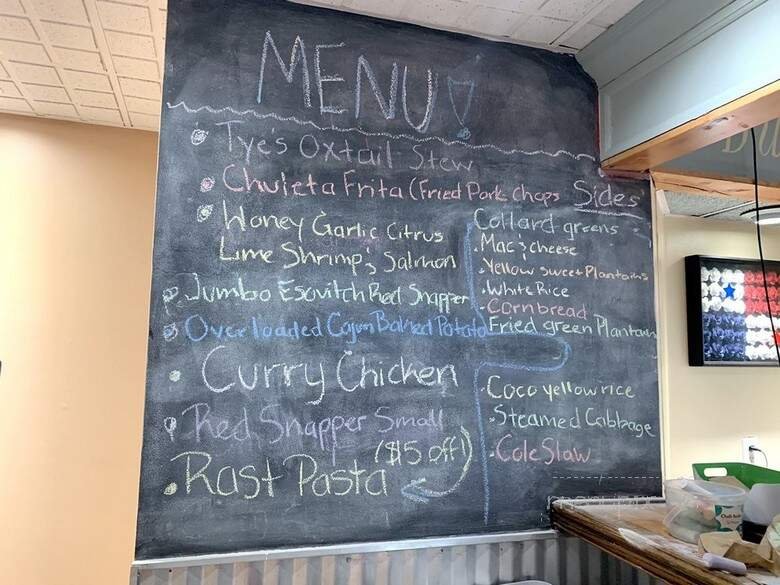 MENU!
Tye's Oxtail Stew
Chuleta Frita (Fried Pork Chops
Honey Garlic Citrus
Lime Shrimp & Salmon
Jumbo Escvitch Red Snapper
Overloaded Cajun Baked Potato
Curry Chicken
Red Snapper Small
($15 off)
Rast Pasta
Sides
Collard greens
Mac & cheese
Yellow sweet Plantains
White Rice
Cornbread
Fried green Plantain
Coco yellow rice
Steamed Cabbage
Cole Slaw